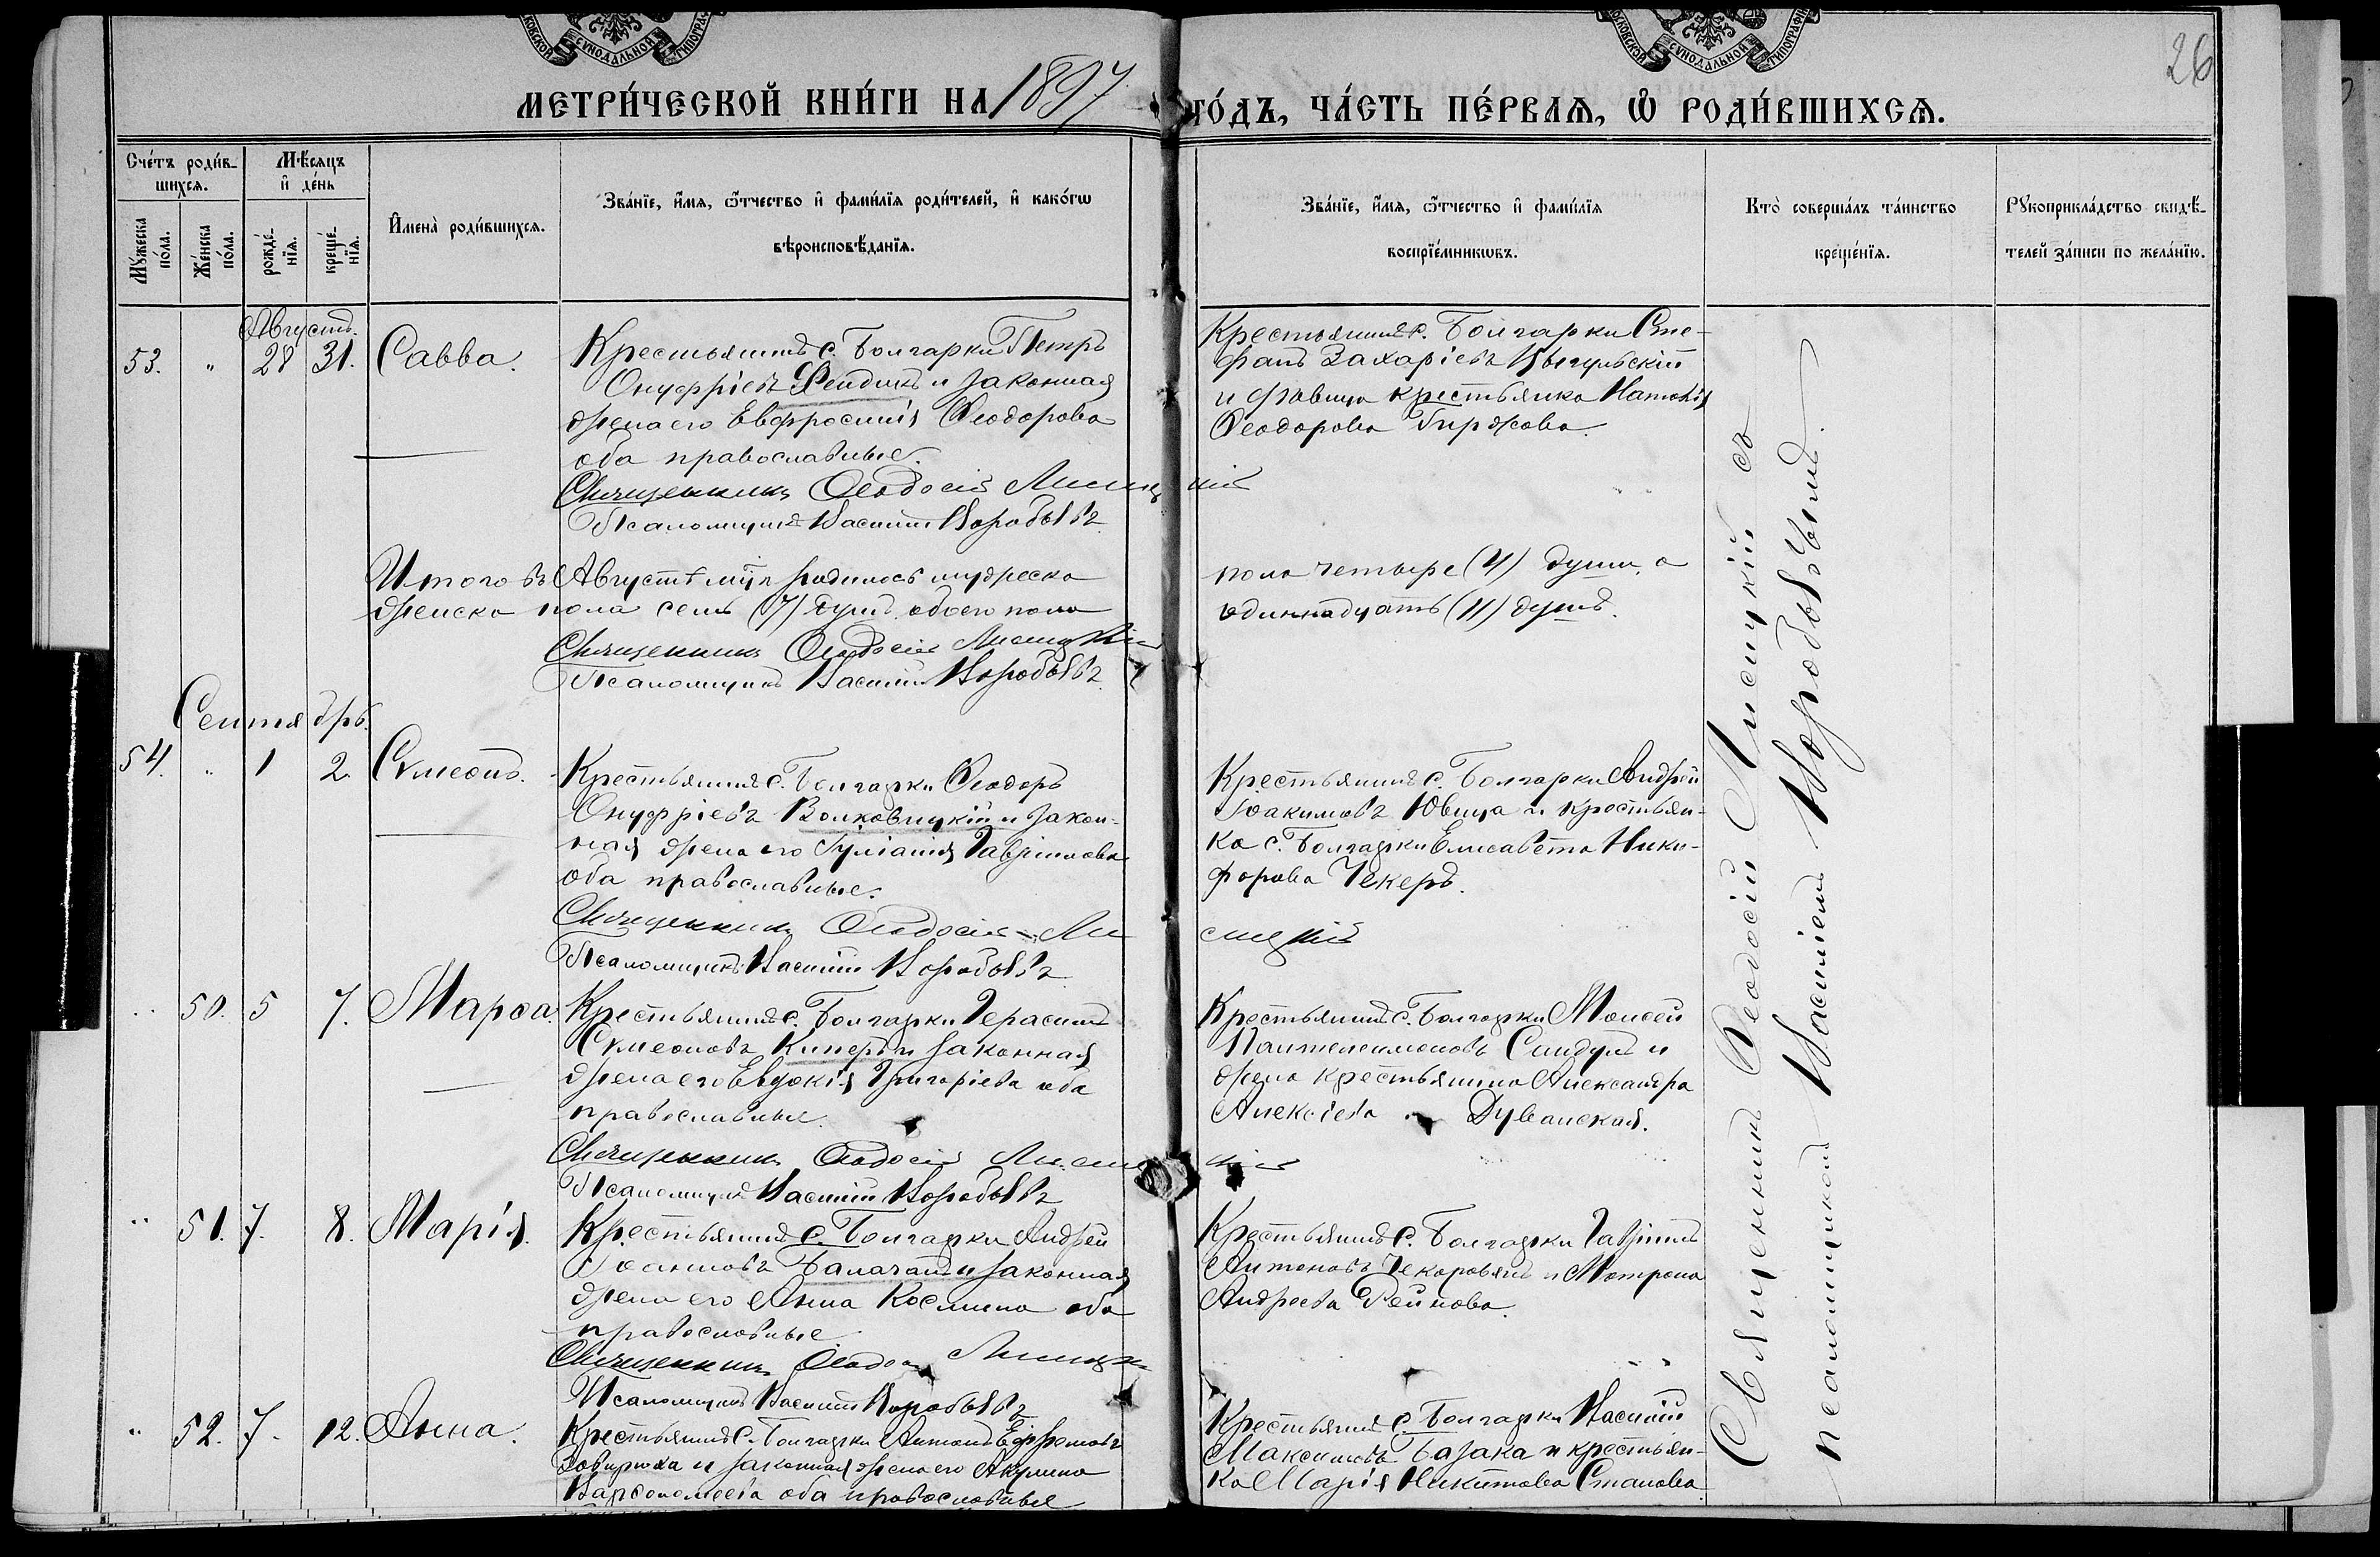 МОСКОВСКОЙ СѴНОДАЛЬНОЙ ТИПОГРАФІИ
МОСКОВСКОЙ СѴНОДАЛЬНОЙ ТИПОГРАФІИ
26
МЕТРИ́ЧЕСКОЙ КНИ́ГИ НА 1897 ГО́ДЪ, ЧА́СТЬ ПЕ́РВАѦ, Ѽ РОДИ́ВШИХСѦ.
Сче́тъ роди́в-
шихсѧ.
Мꙋ́жеска по́ла.
Же́нска по́ла.
Мѣ́сѧцъ
и҆ де́нь
рожде́-
нїѧ.
креще́-
нїѧ.
И҆мена̀ роди́вшихсѧ.
Зва́нїе, и҆́мѧ, ѻ҆́тчество и҆ фами́лїѧ роди́телей, и҆ како́гѡ
вѣроисповѣ́данїѧ.
Зва́нїе, и҆́мѧ, ѻ҆́тчество и҆ фами́лїѧ
воспрїе́мникѡвъ.
Кто̀ соверша́лъ та́инство
креще́нїѧ.
Рꙋкоприкла́дство свидѣ́-
телей за́писи по жела́нїю.
Августъ.
53. " 28 31. Савва.
Крестьянинъ с. Болгарки Петръ
Онуфріевъ Фендикъ и законная
жена его Евфросинія Ѳеодорова
оба православные.
Священникъ Ѳеодосій Лисицкій
Псаломщикъ Василій Воробьёвъ
Крестьянинъ с. Болгарки Сте-
фанъ Захаріевъ
и крестьянка Наталія
Ѳеодорова Биржова.
Итого въ Августѣ мцѣ родилось мужеска пола четыре (4) души, а
женска пола семь (7) душъ обоего пола одиннадцать (11) душъ.
Священникъ Ѳеодосій Лисицкій
Псаломщикъ Василій Воробьёвъ
Сентябрь.
54. " 1 2. Сѵмеонъ.
Крестьянинъ с. Болгарки Ѳеодоръ
Онуфріевъ Волковицкій и закон-
ная жена его Іуліанія Гавріилова
оба православные.
Священникъ Ѳеодосій Лисицкій
Псаломщикъ Василій Воробьёвъ
Крестьянинъ с. Болгарки Андрей
Іоакимовъ Ювица и крестьян-
ка с. Болгарки Елисавета Ники-
форова Чекеръ.
" 50. 5 7. Марѳа.
Крестьянинъ с. Болгарки Герасимъ
Сѵмеоновъ Киперъ и законная
жена его Евдокія Григоріева оба
православные.
Священникъ Ѳеодосій Лисицкій
Псаломщикъ Василій Воробьёвъ
Крестьянинъ с. Болгарки Моисей
Пантелеимоновъ Сандулъ и
жена крестьянина Александра
Алексіева Дуванская.
" 51. 7. 8. Марія.
Крестьянинъ с. Болгарки Андрей
Іоанновъ Балачанъ и законная
жена его Анна Космина оба
православные
Священникъ Ѳеодосій Лисицкій
Псаломщикъ Василій Воробьёвъ
Крестьянинъ с. Болгарки Гавріилъ
Антоновъ Чекоровянъ и Мотрона
Андреева Рейнова.
" 52. 7. 12. Анна.
Крестьянинъ с. Болгарки Антонъ Ефремовъ
Завирюха и законная жена его Акулина
Варѳоломеева оба православные
Крестьянинъ с. Болгарки Василій
Максимовъ Базака и крестьян-
ка Марія Никитова Станова
Священникъ Ѳеодосій Лисицкій съ
псаломщикомъ Василіемъ Воробьёвымъ.